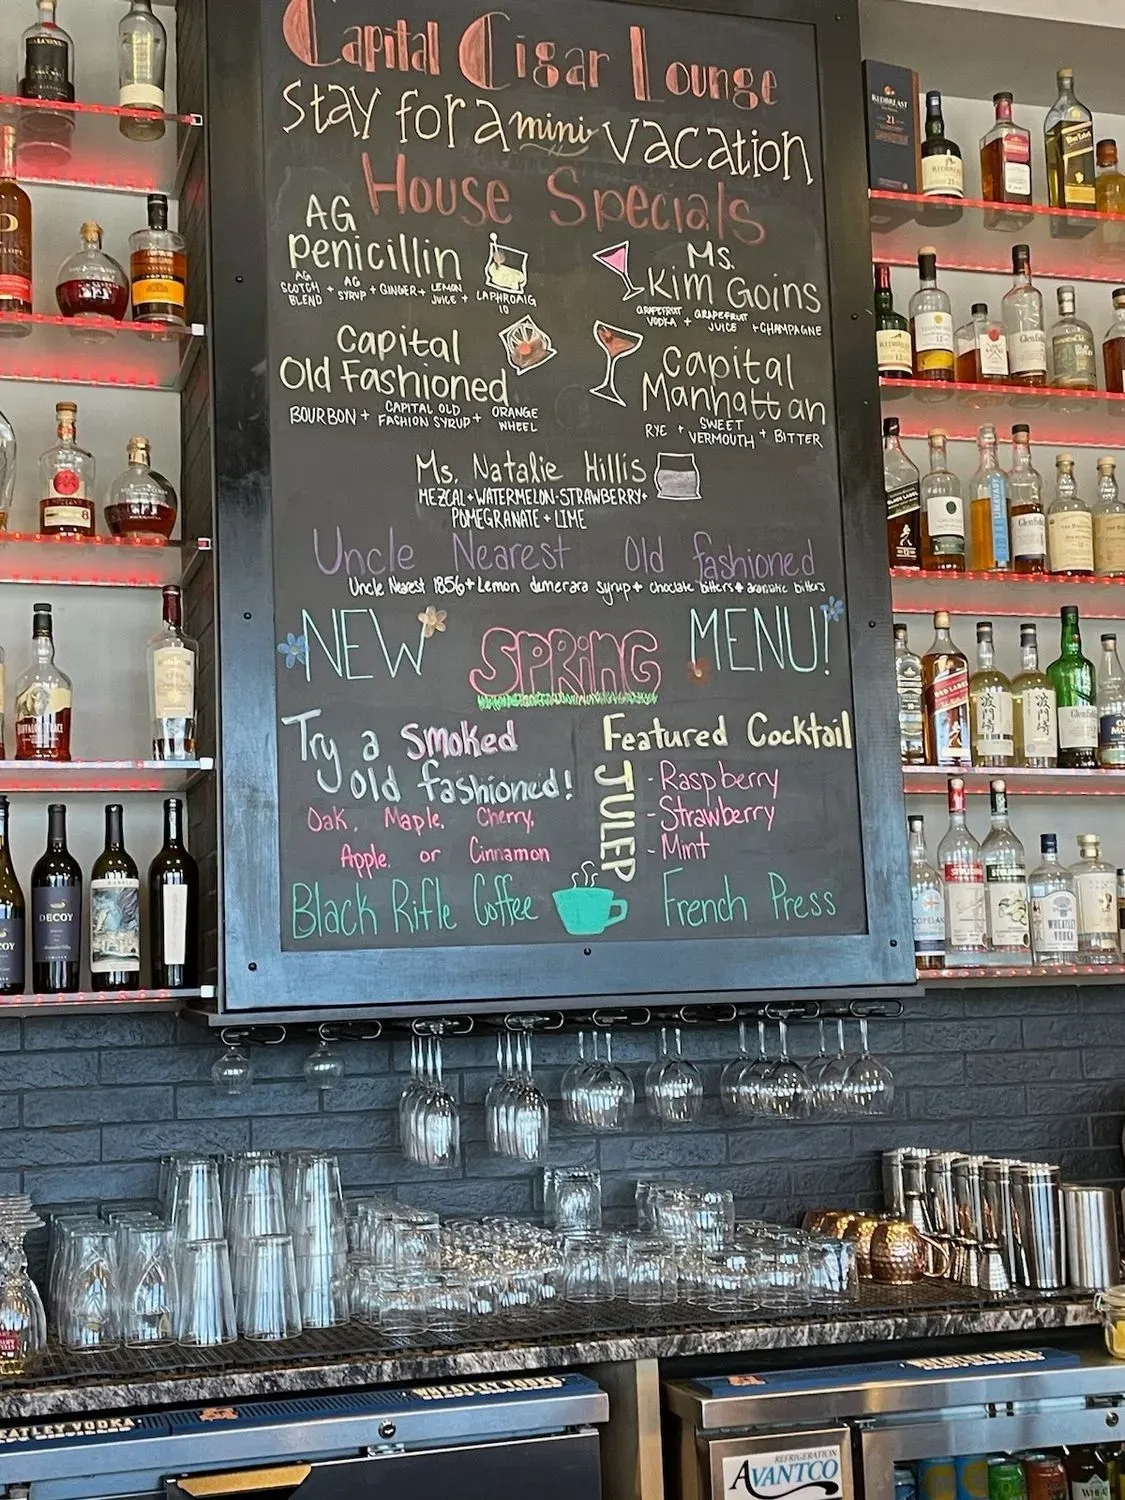 Capital Cigar Lounge
Stay for a mini vacation
House Specials
AG
Penicillin
AG SCOTCH BLEND + AG SYRUP + GINGER + LEMON JUICE + LAPHROAIG 10
Ms.
Kim Goins
GRAPEFRUIT VODKA + GRAPEFRUIT JUICE + CHAMPAGNE
Capital
Old Fashioned
BOURBON + CAPITAL OLD FASHION SYRUP + ORANGE WHEEL
Capital
Manhattan
RYE + SWEET VERMOUTH + BITTER
Ms. Natalie Hillis
MEZCAL + WATERMELON-STRAWBERRY +
POMEGRANATE + LIME
Uncle Nearest Old fashioned
Uncle Nearest 1856 + Lemon demerara syrup + choclate bitters + aromatic bitters
NEW SPRING MENU!
Try a Smoked
old fashioned!
Oak, Maple, Cherry,
Apple, or Cinnamon
Featured Cocktail
JULEP
- Raspberry
- Strawberry
- Mint
Black Rifle Coffee French Press
REDBREAST
21
REDBREAST
12
BLACK LABEL
RED LABEL
DECOY
WHEATLEY
VODKA
WHEATLEY VODKA
REFRIGERATION
AVANTCO